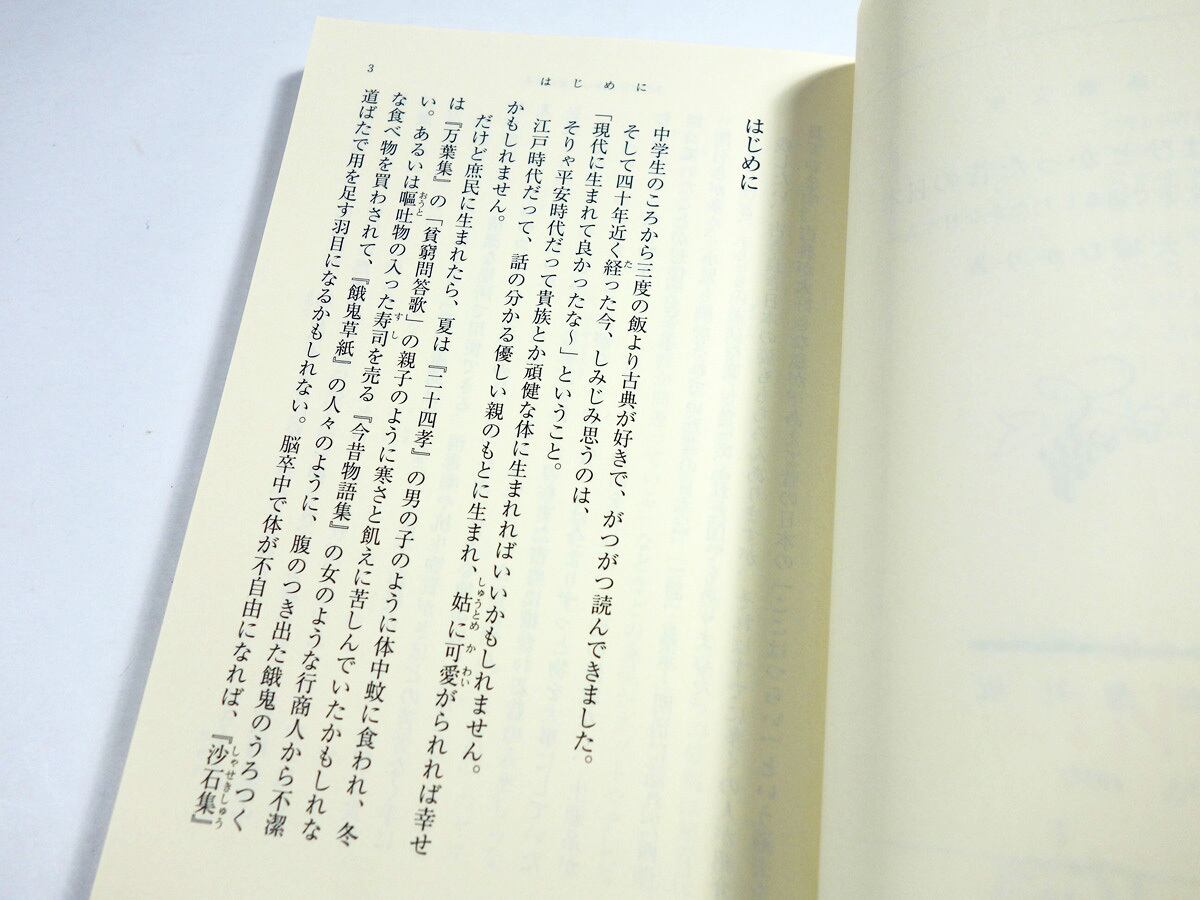 3
はじめに
はじめに
中学生のころから三度の飯より古典が好きで、がつがつ読んできました。
そして四十年近く経った今、しみじみ思うのは、
「現代に生まれて良かったな〜」ということ。
そりゃ平安時代だって貴族とか頑健な体に生まれればいいかもしれません。
江戸時代だって、話の分かる優しい親のもとに生まれ、姑に可愛がられれば幸せ
かもしれません。
だけど庶民に生まれたら、夏は『二十四孝』の男の子のように体中蚊に食われ、冬
は『万葉集』の「貧窮問答歌」の親子のように寒さと飢えに苦しんでいたかもしれな
い。あるいは嘔吐物の入った寿司を売る『今昔物語集』の女のような行商人から不潔
な食べ物を買わされて、『餓鬼草紙』の人々のように、腹のつき出た餓鬼のうろつく
道ばたで用を足す羽目になるかもしれない。脳卒中で体が不自由になれば、『沙石集』